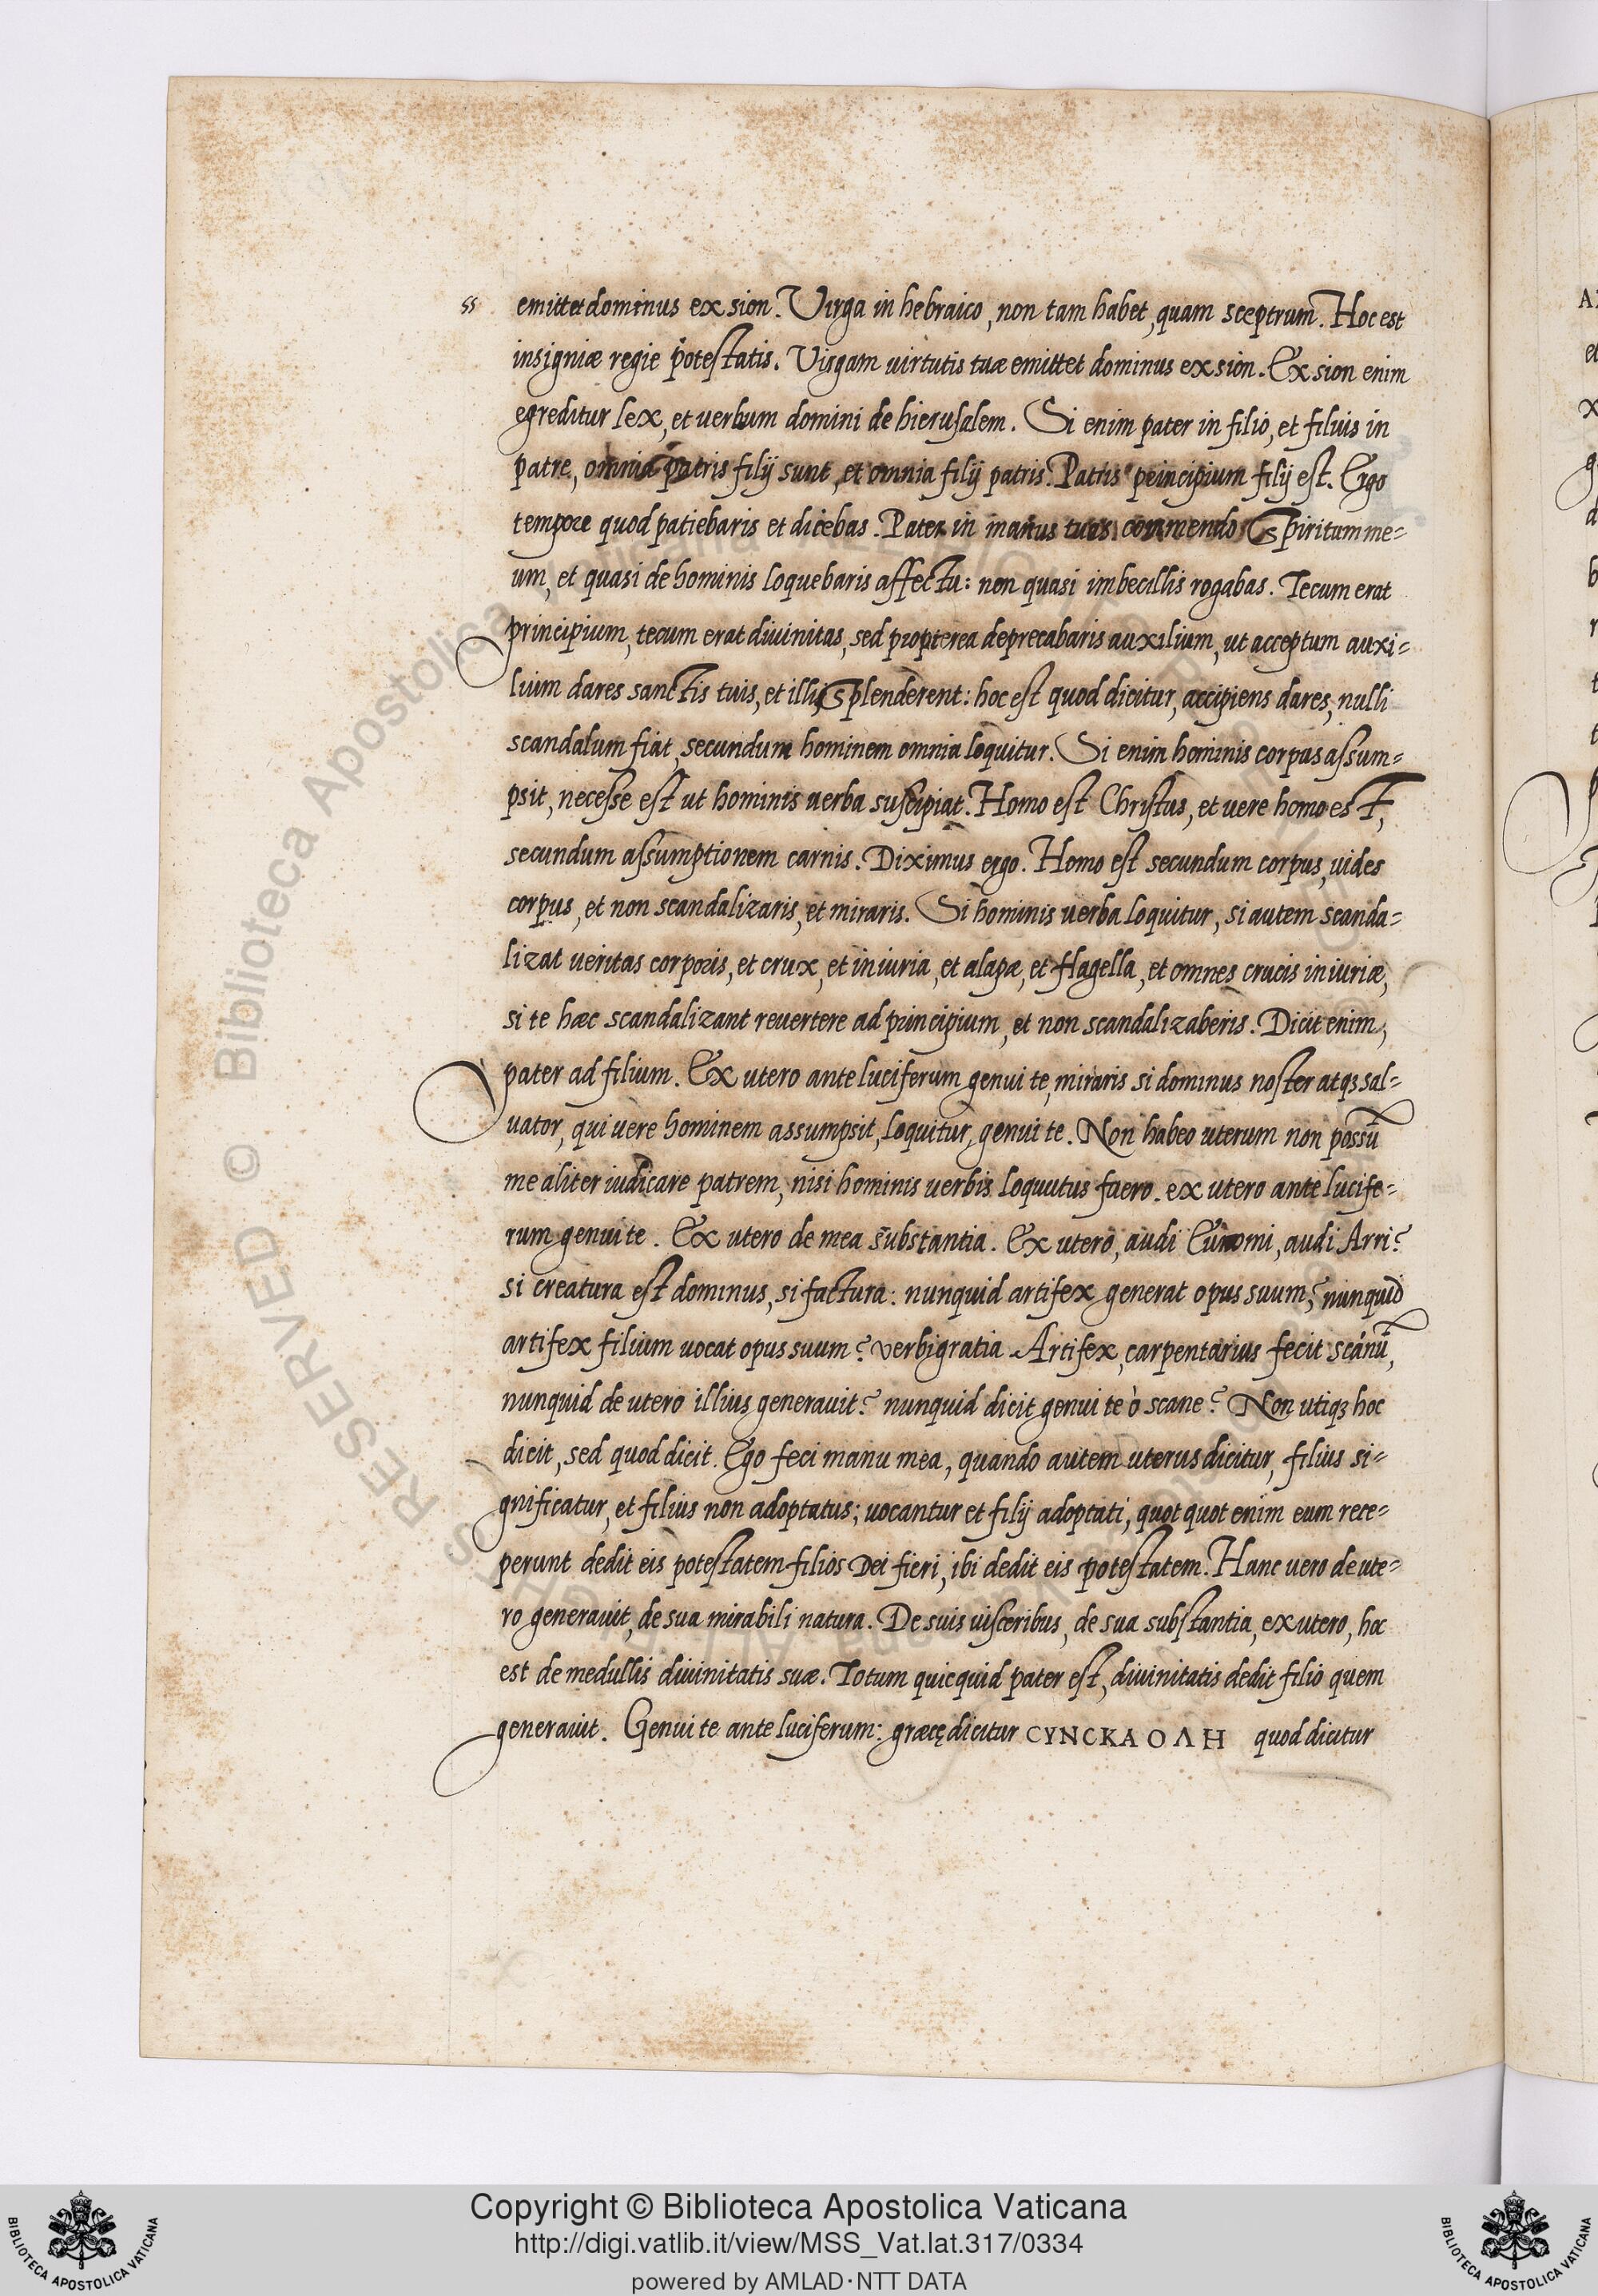 ss emittet dominus ex sion. Virga in hebraico, non tam habet, quam sceptrum. Hoc est
insigniæ regie potestatis. Virgam uirtutis tuæ emittet dominus ex sion. Ex sion enim
egreditur lex, et uerbum domini de hierusalem. Si enim pater in filio, et filius in
patre, omnia patris filij sunt, et omnia filij patris. Patris principium filij est. Ergo
tempore quod patiebaris et dicebas. Pater in manus tuas commendo Spiritum me=
um, et quasi de hominis loquebaris affectu: non quasi imbecillis rogabas. Tecum erat
principium, tecum erat diuinitas, sed propterea deprecabaris auxilium, ut acceptum auxi=
lium dares sanctis tuis, et illis Splenderent: hoc est quod dicitur, accipiens dares, nulli
scandalum fiat, secundum hominem omnia loquitur. Si enim hominis corpus assum=
psit, necesse est ut hominis uerba suscipiat. Homo est Christus, et uere homo est,
secundum assumptionem carnis. Diximus ergo. Homo est secundum corpus, uides
corpus, et non scandalizaris, et miraris. Si hominis uerba loquitur, si autem scanda=
lizat ueritas corporis, et crux, et iniuria, et alapæ, et flagella, et omnes crucis iniuriæ,
si te hæc scandalizant reuertere ad principium, et non scandalizaberis. Dicit enim,
pater ad filium. Ex utero ante luciferum genui te, miraris si dominus noster atqꝫ sal=
uator, qui uere hominem assumpsit, loquitur, genui te. Non habeo uterum non possũ
me aliter iudicare patrem, nisi hominis uerbis loquutus fuero. ex utero ante lucife=
rum genui te. Ex utero de mea substantia. Ex utero, audi Eunomi, audi Arri?
si creatura est dominus, si factura: nunquid artifex generat opus suum? nunquid
artifex filium uocat opus suum? verbi gratia Artifex, carpentarius fecit scánũ,
nunquid de utero illius generauit? nunquid dicit genui te ò scane? Non utiqꝫ hoc
dicit, sed quod dicit. Ego feci manu mea, quando autem uterus dicitur, filius si=
gnificatur, et filius non adoptatus; uocantur et filij adoptati, quot quot enim eum rece=
perunt dedit eis potestatem filios Dei fieri, ibi dedit eis potestatem. Hanc uero de ute=
ro generauit, de sua mirabili natura. De suis uisceribus, de sua substantia, ex utero, hoc
est de medullis diuinitatis suæ. Totum quicquid pater est, diuinitatis dedit filio quem
generauit. Genui te ante luciferum: græcę dicitur CYNCKA OΛH quod dicitur
© Biblioteca Apostolica Vaticana
RESERVED
Copyright © Biblioteca Apostolica Vaticana
http://digi.vatlib.it/view/MSS_Vat.lat.317/0334
powered by AMLAD·NTT DATA
BIBLIOTECA APOSTOLICA VATICANA
BIBLIOTECA APOSTOLICA VATICANA